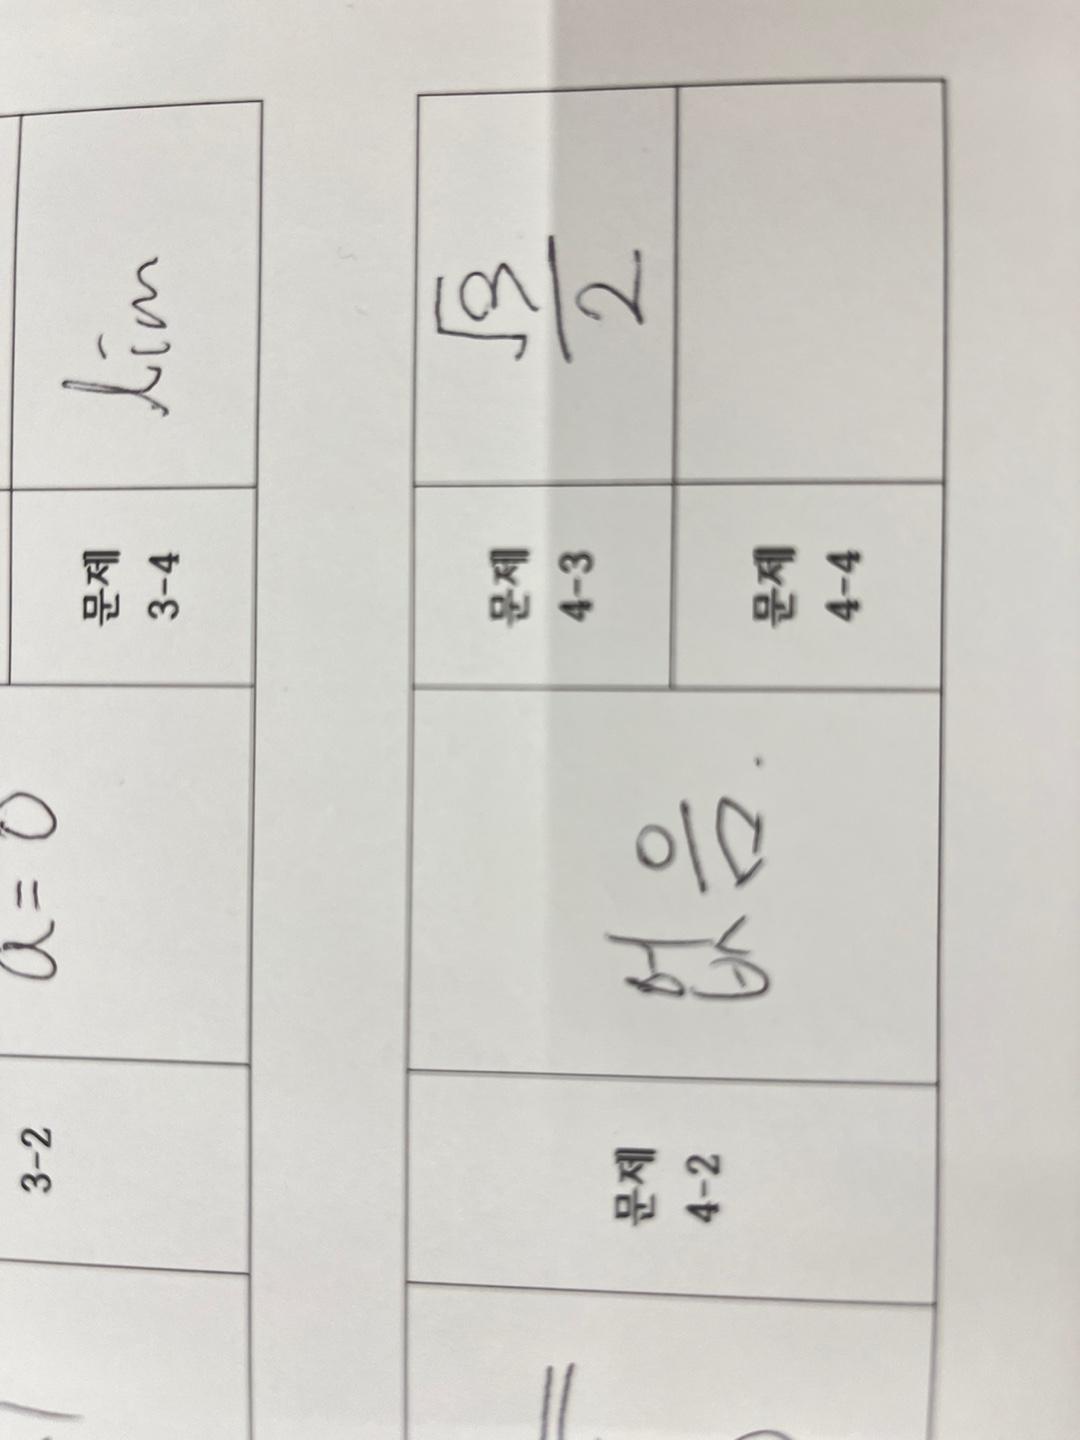 3-2
a = 0
문제
3-4
lim
문제
4-2
없음.
문제
4-3
√3/2
문제
4-4